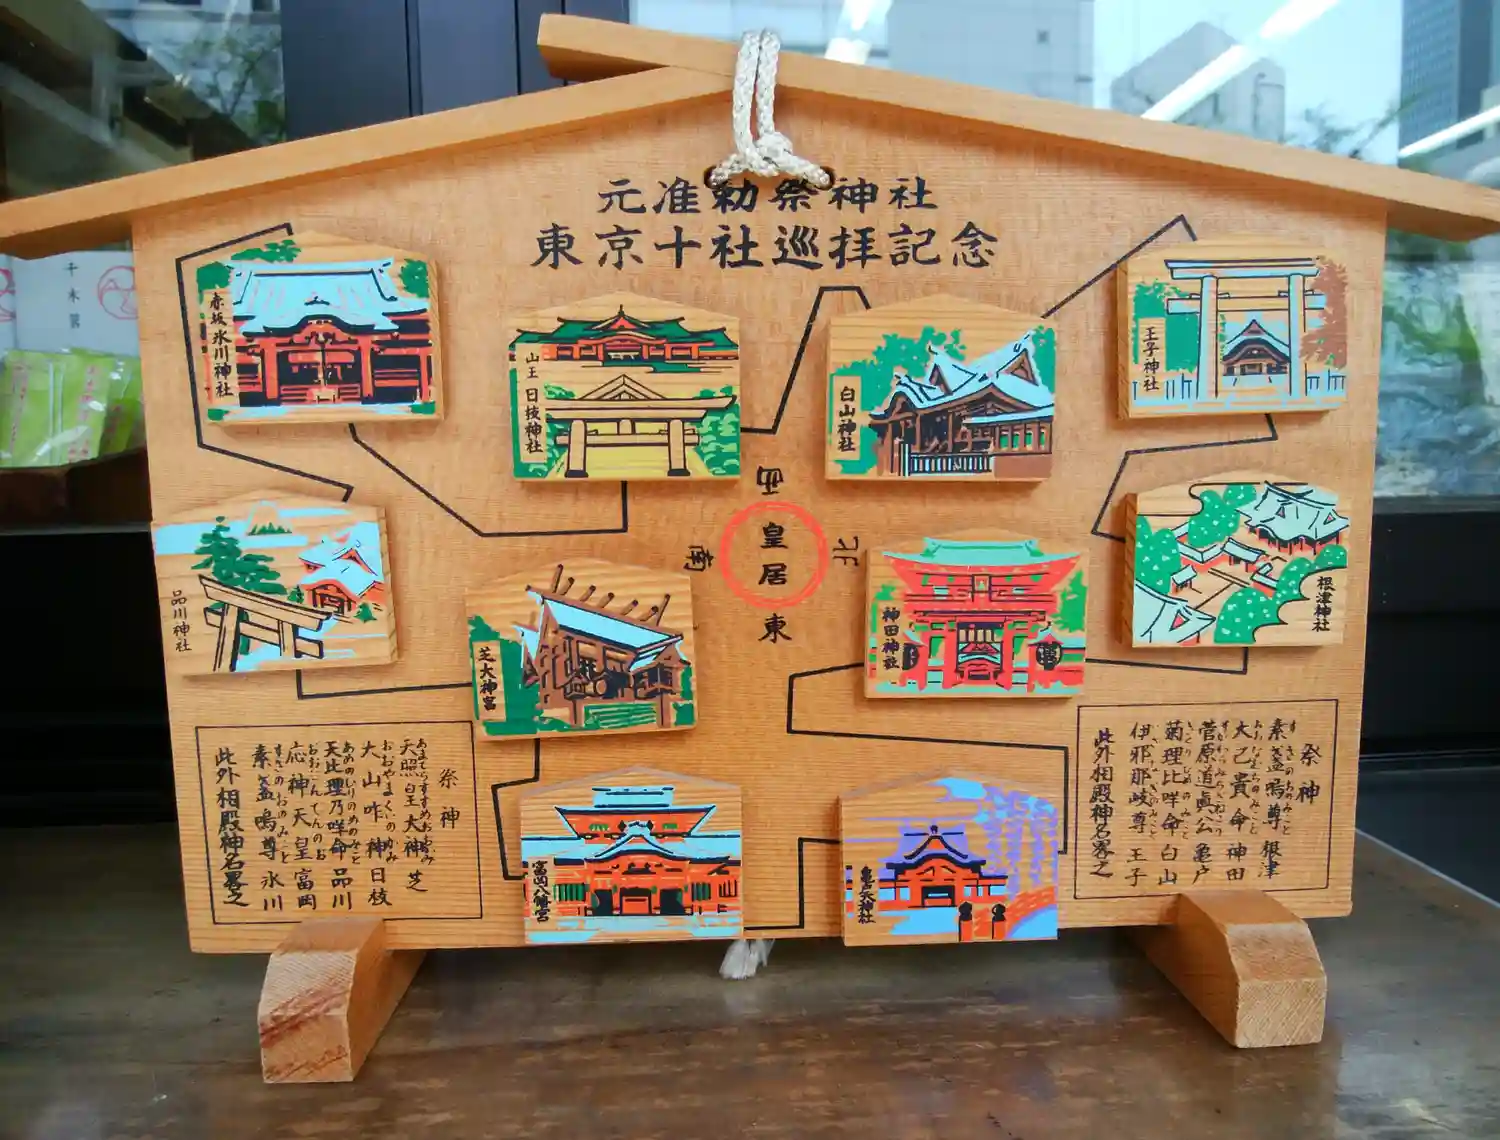 元准勅祭神社
東京十社巡拝記念
赤坂氷川神社
山王 日枝神社
白山神社
王子神社
品川神社
芝大神宮
西
南
皇居
北
東
神田神社
根津神社
富岡八幡宮
亀戸天神社
祭神
素盞嗚尊 根津
大己貴命 神田
菅原道眞公 亀戸
菊理比咩命 白山
伊邪那岐尊 王子
此外相殿神名畧之
祭神
天照皇大神 芝
大山咋神 日枝
天比理乃咩命 品川
応神天皇 富岡
素盞嗚尊 氷川
此外相殿神名畧之